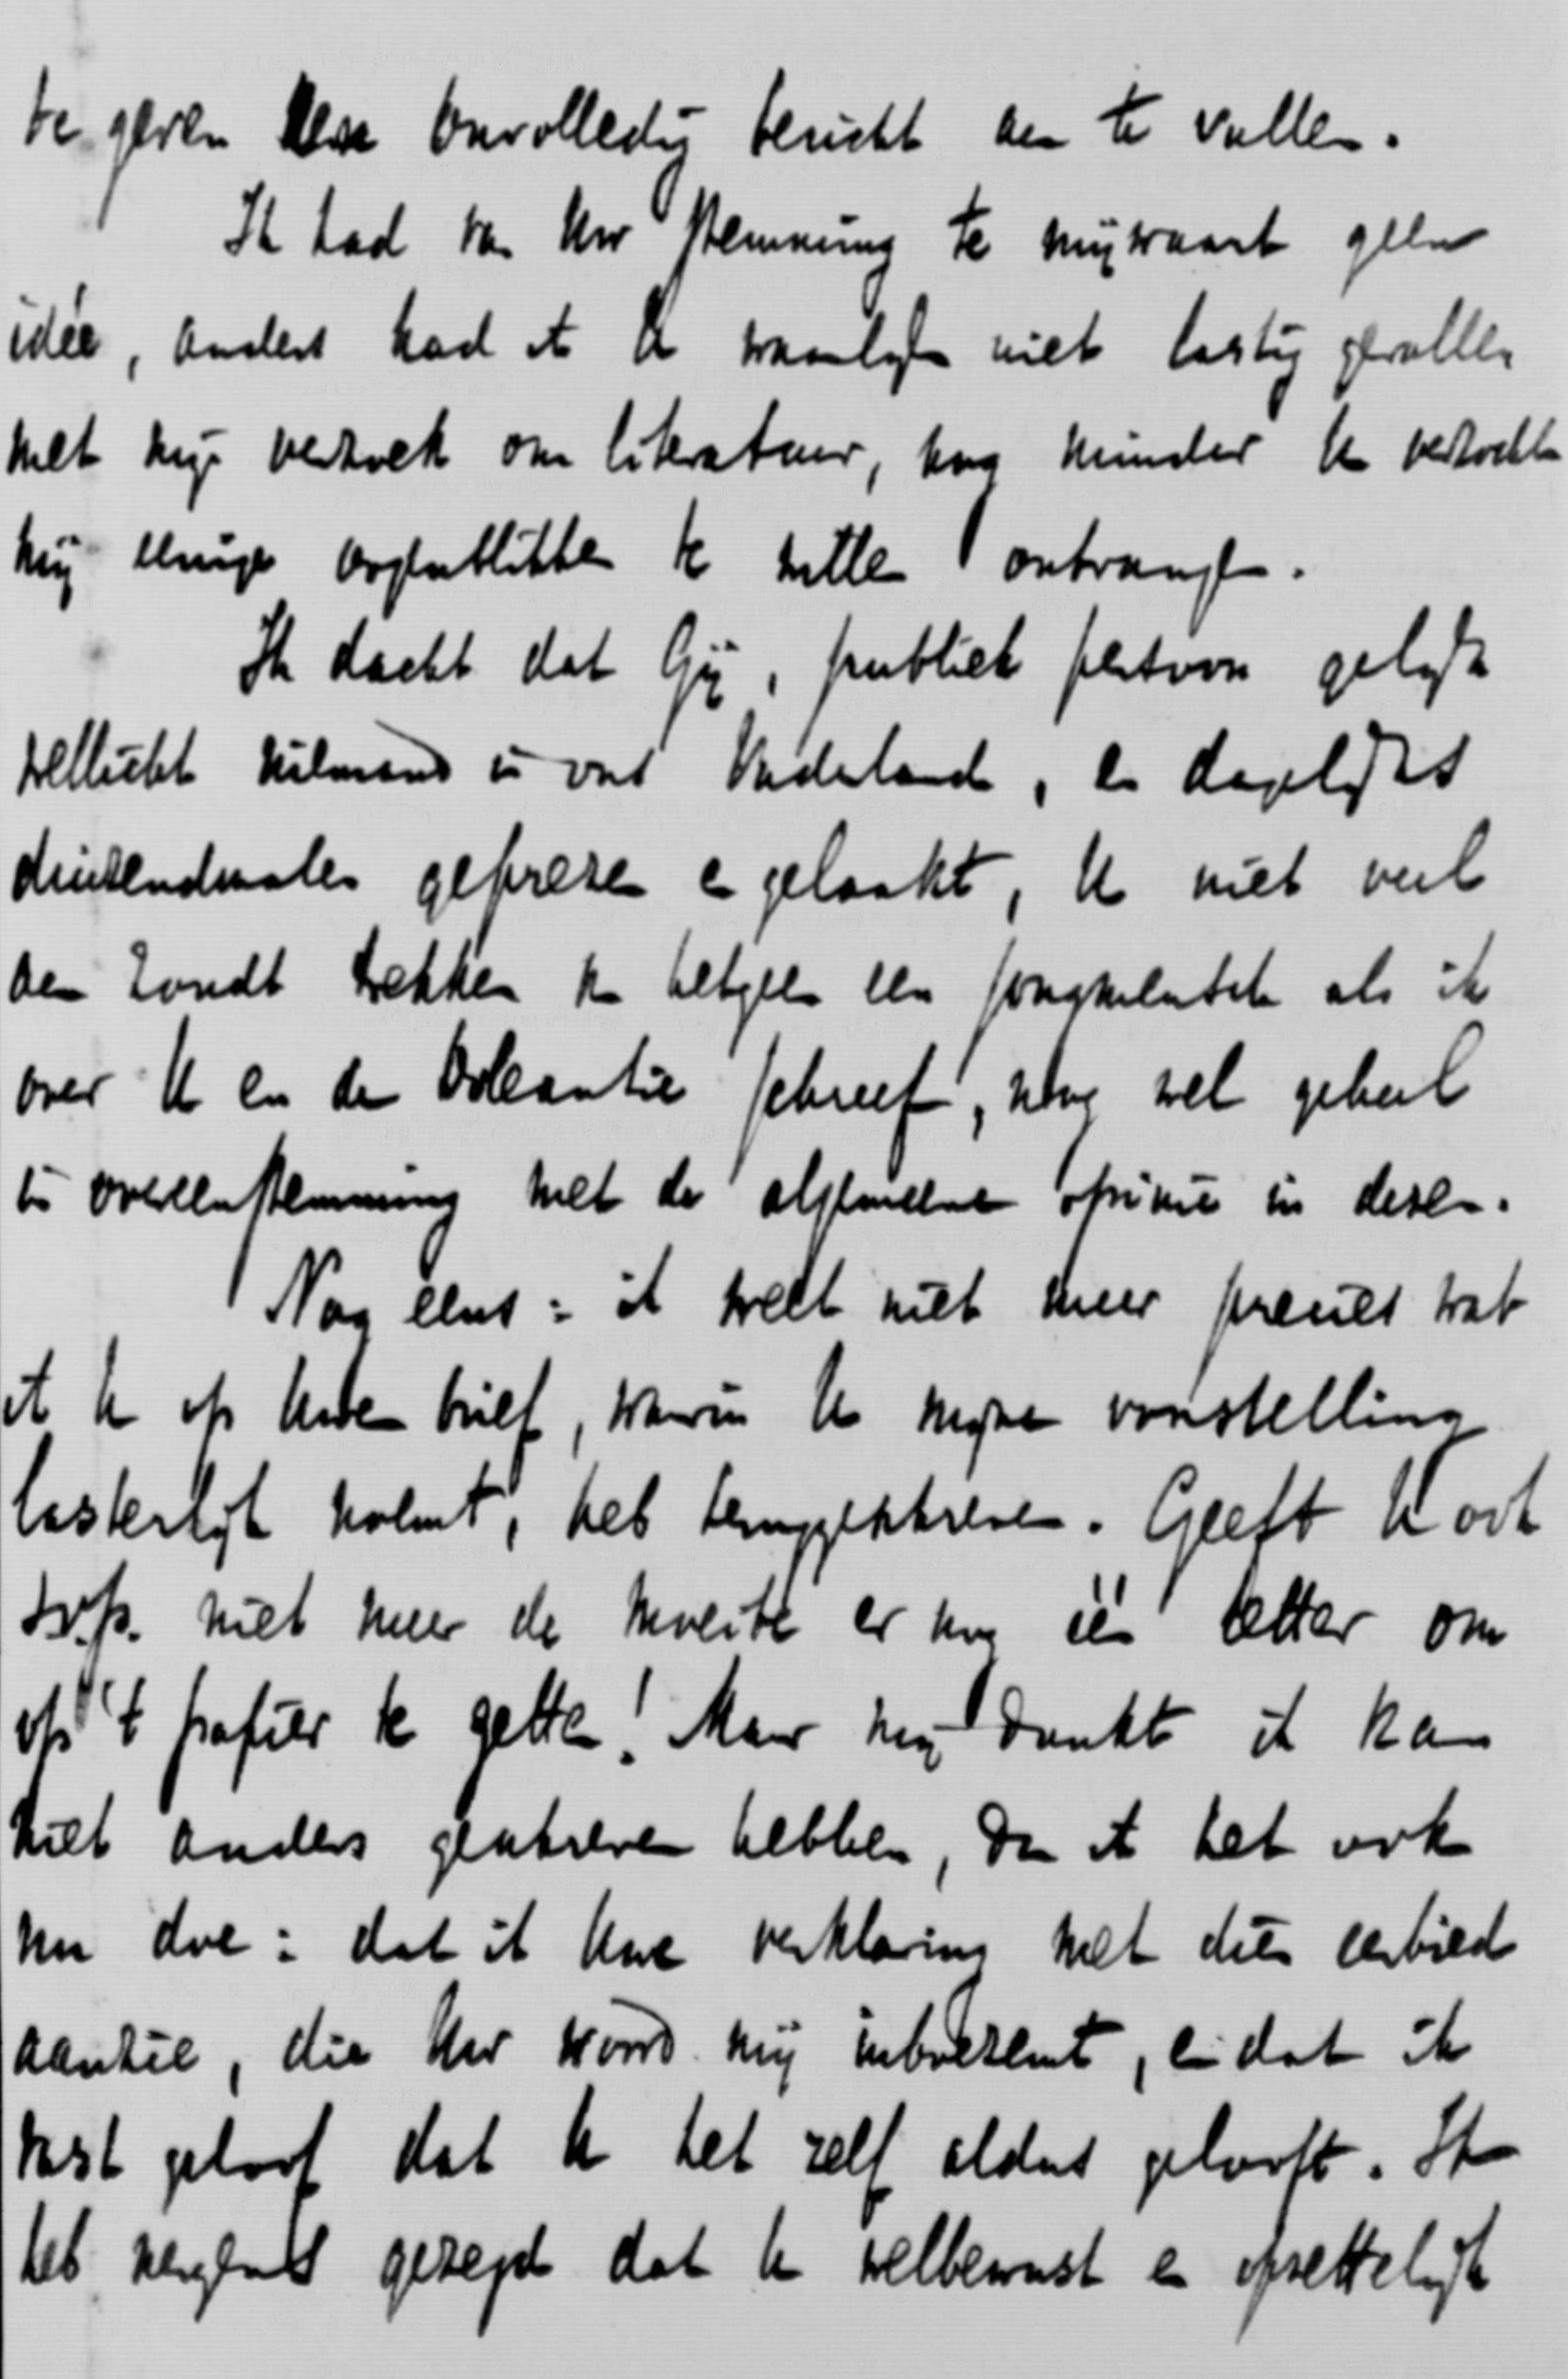 te geven een onvolledig bericht aan te vullen.
Ik had van Uw stemming te mijwaart geen
idée, anders had ik U waarlijk niet lastig gevallen
met mijn verzoek om literatuur, nog minder U verzocht
mij eenige oogenblikken te willen ontvangen.
Ik dacht dat Gij, publiek persoon gelijk
wellicht niemand in ons Vaderland, en dagelijks
duizendmalen geprezen en gelaakt, U niet veel
aan zoudt trekken van hetgeen een jongmensch als ik
over U en de Doleantie schreef, nog wel geheel
in overeenstemming met de algemeene opinie in dezen.
Nog eens: ik weet niet meer precies wat
ik U op Uwen brief, waarin U mijne voorstelling
lasterlijk noemt, heb teruggeschreven. Geeft U ook
s.v.p. niet meer de moeite er nog één letter om
op 't papier te zetten! Maar mij dunkt ik kan
niet anders geschreven hebben, dan ik het ook
nu doe: dat ik Uwe verklaring met dien eerbied
aanzie, die Uw woord mij inboezemt, en dat ik
vast geloof dat U het zelf aldus gelooft. Ik
heb nergens gezegd dat U welbewust en opzettelijk